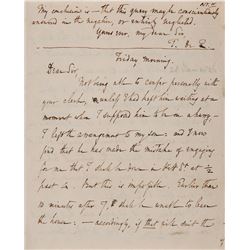 My conclusion is – that this query may be conscientiously
answered in the negative, or entirely neglected.
Yours ever, my dear Sir,
Friday morning.
Dear Sir,
Not being able to confer personally with
your clerk, unless I had kept him waiting at a
moment when I supposed him to be in a hurry –
I left the arrangement to my son: and I now
find that he has made the mistake of engaging
for me that I shall be down in St at 1/2
past 6. But this is impossible. Earlier than
10 minutes after 7, I shall be unable to leave
the house: – accordingly, is that will suit the